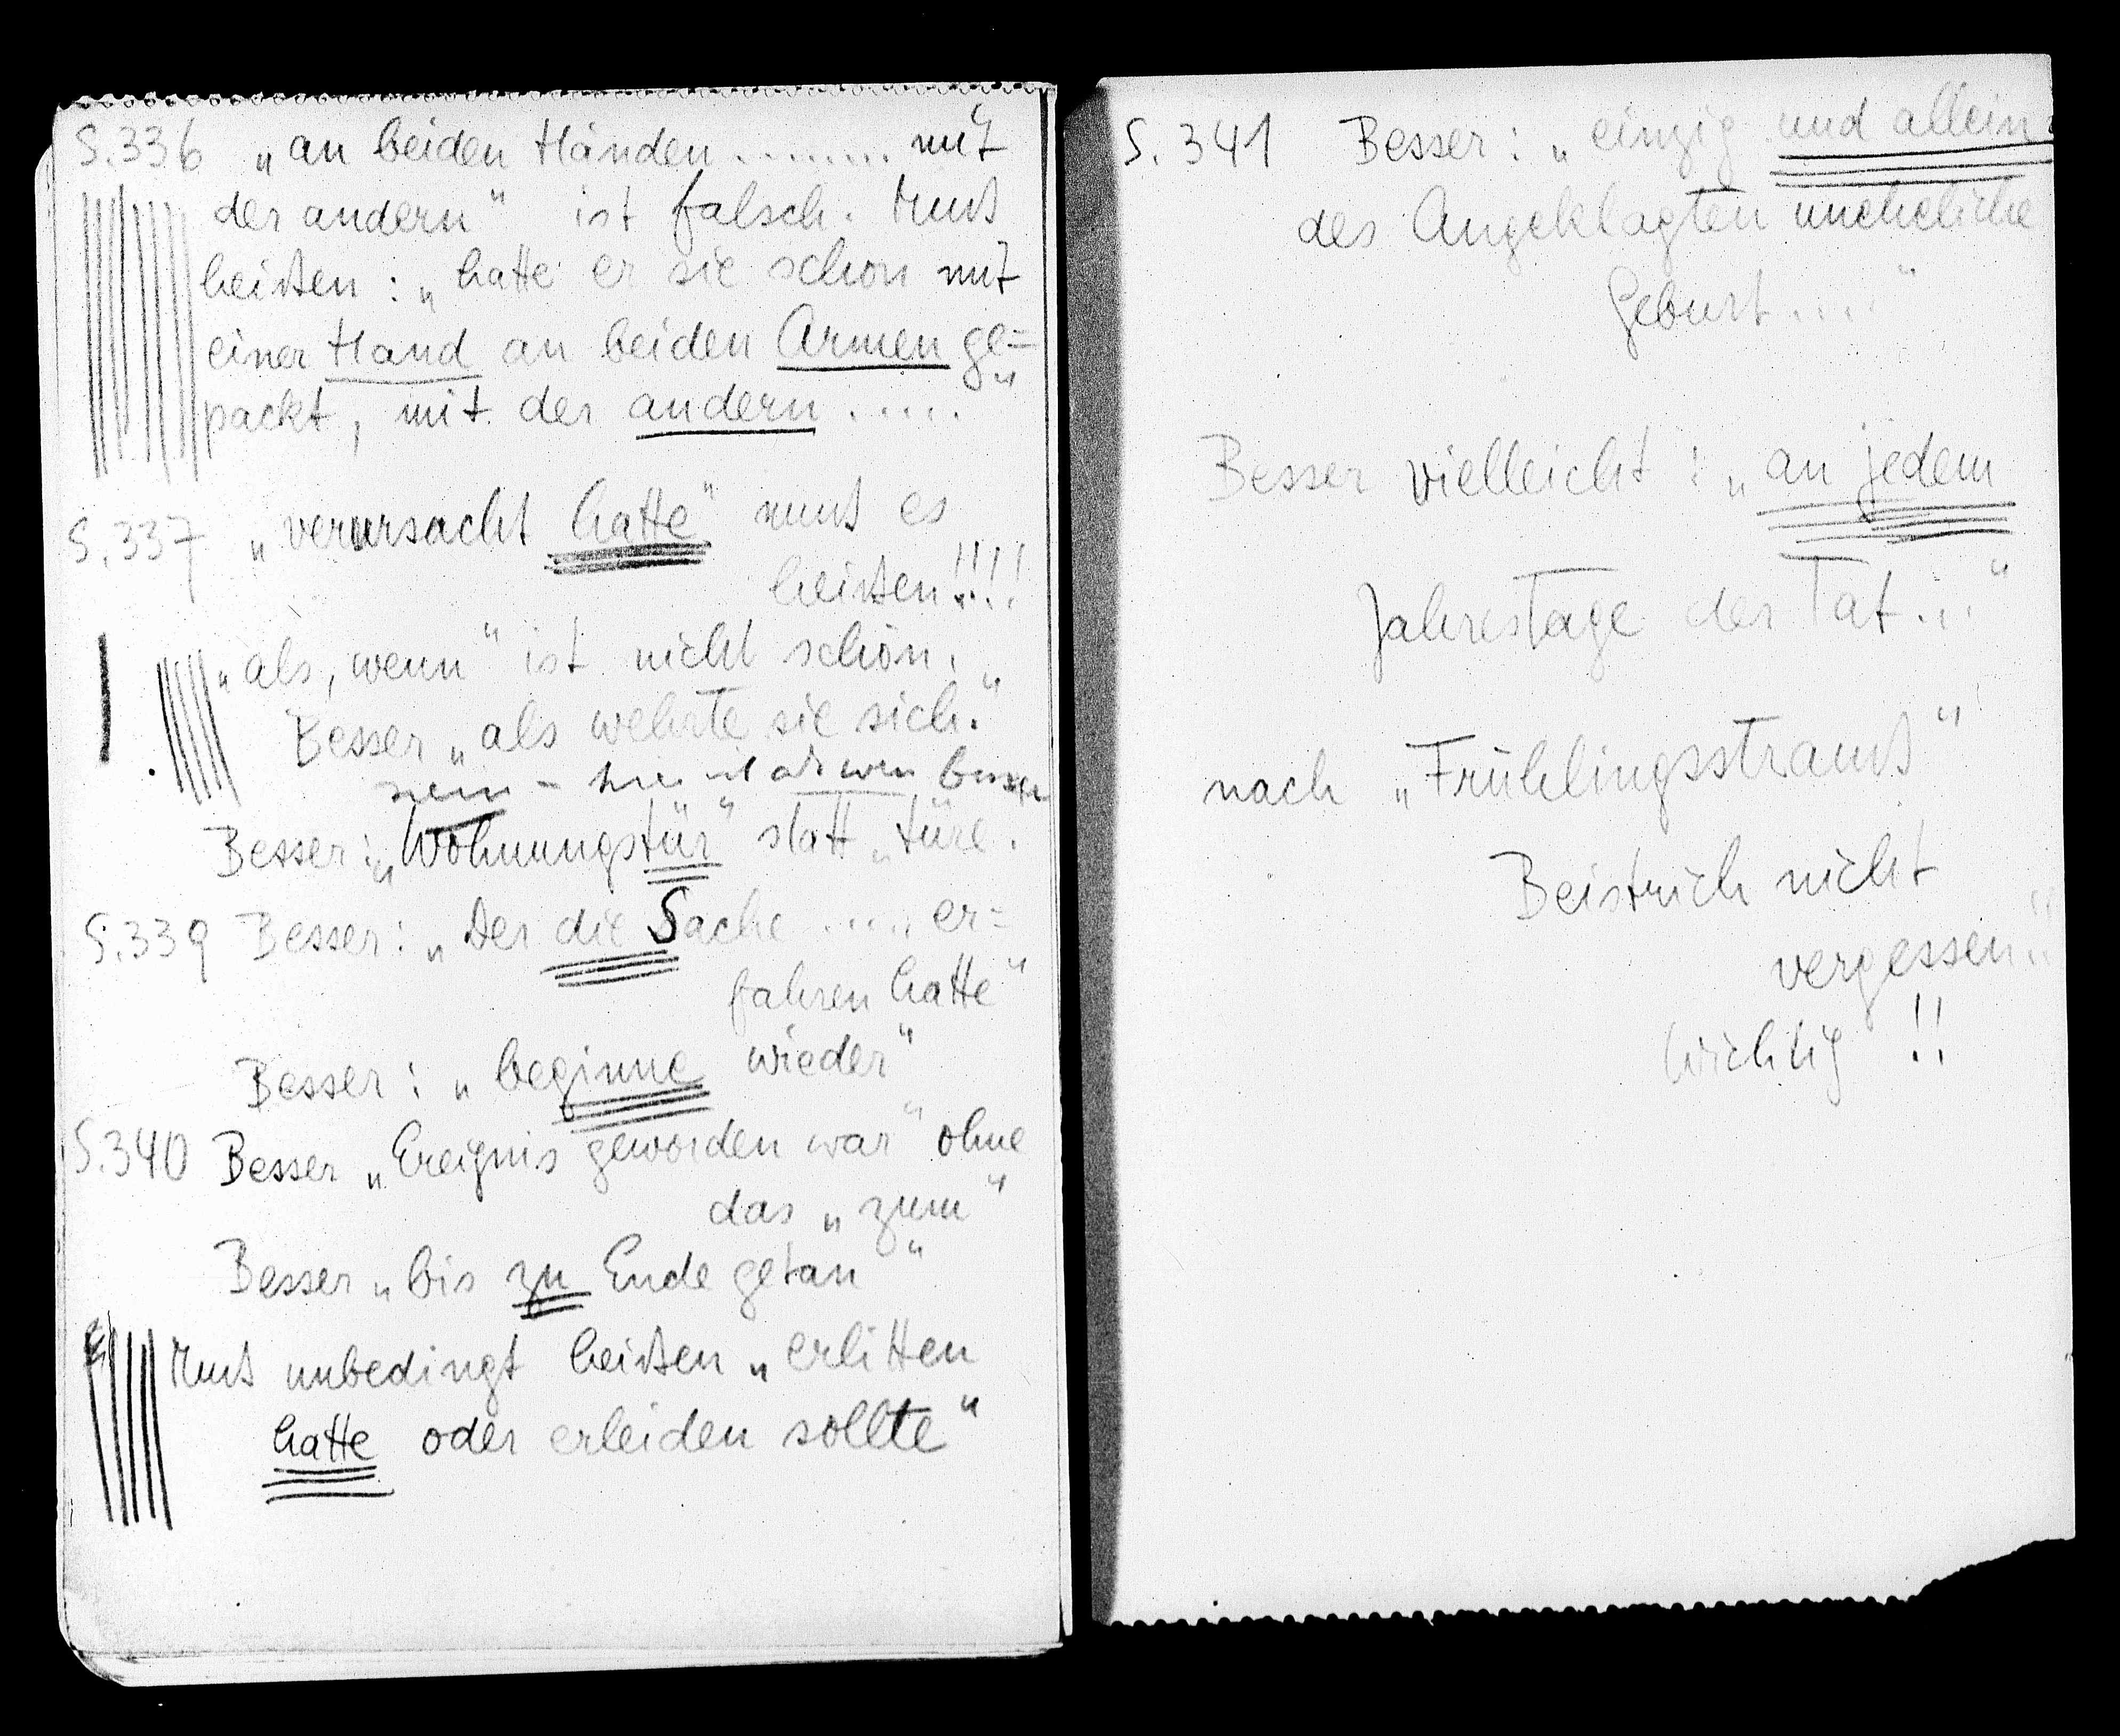 S.336 „an beiden Händen ........ mit
der andern" ist falsch. Muß
heißen: „hatte er sie schon mit
einer Hand an beiden Armen ge=
packt, mit der andern ....."
S.337 „verursacht hatte" muß es
heißen!!!!
„als, wenn" ist nicht schön.
Besser „als wehrte sie sich."
nein – hier ist als wenn besser
Besser: „Wohnungstür" statt „türe.
S.339 Besser: „Der die Sache ..... er=
fahren hatte"
Besser: „beginne wieder"
S.340 Besser „Ereignis geworden war" ohne
das „zum"
Besser „bis zu Ende getan"
Muß unbedingt heißen „erlitten
hatte oder erleiden sollte"
S. 341 Besser: „einzig und allein
des Angeklagten uneheliche
Geburt...."
Besser vielleicht: „an jedem
Jahrestage der Tat..."
nach „Frühlingsstrauß"
Beistrich nicht
vergessen
Wichtig !!